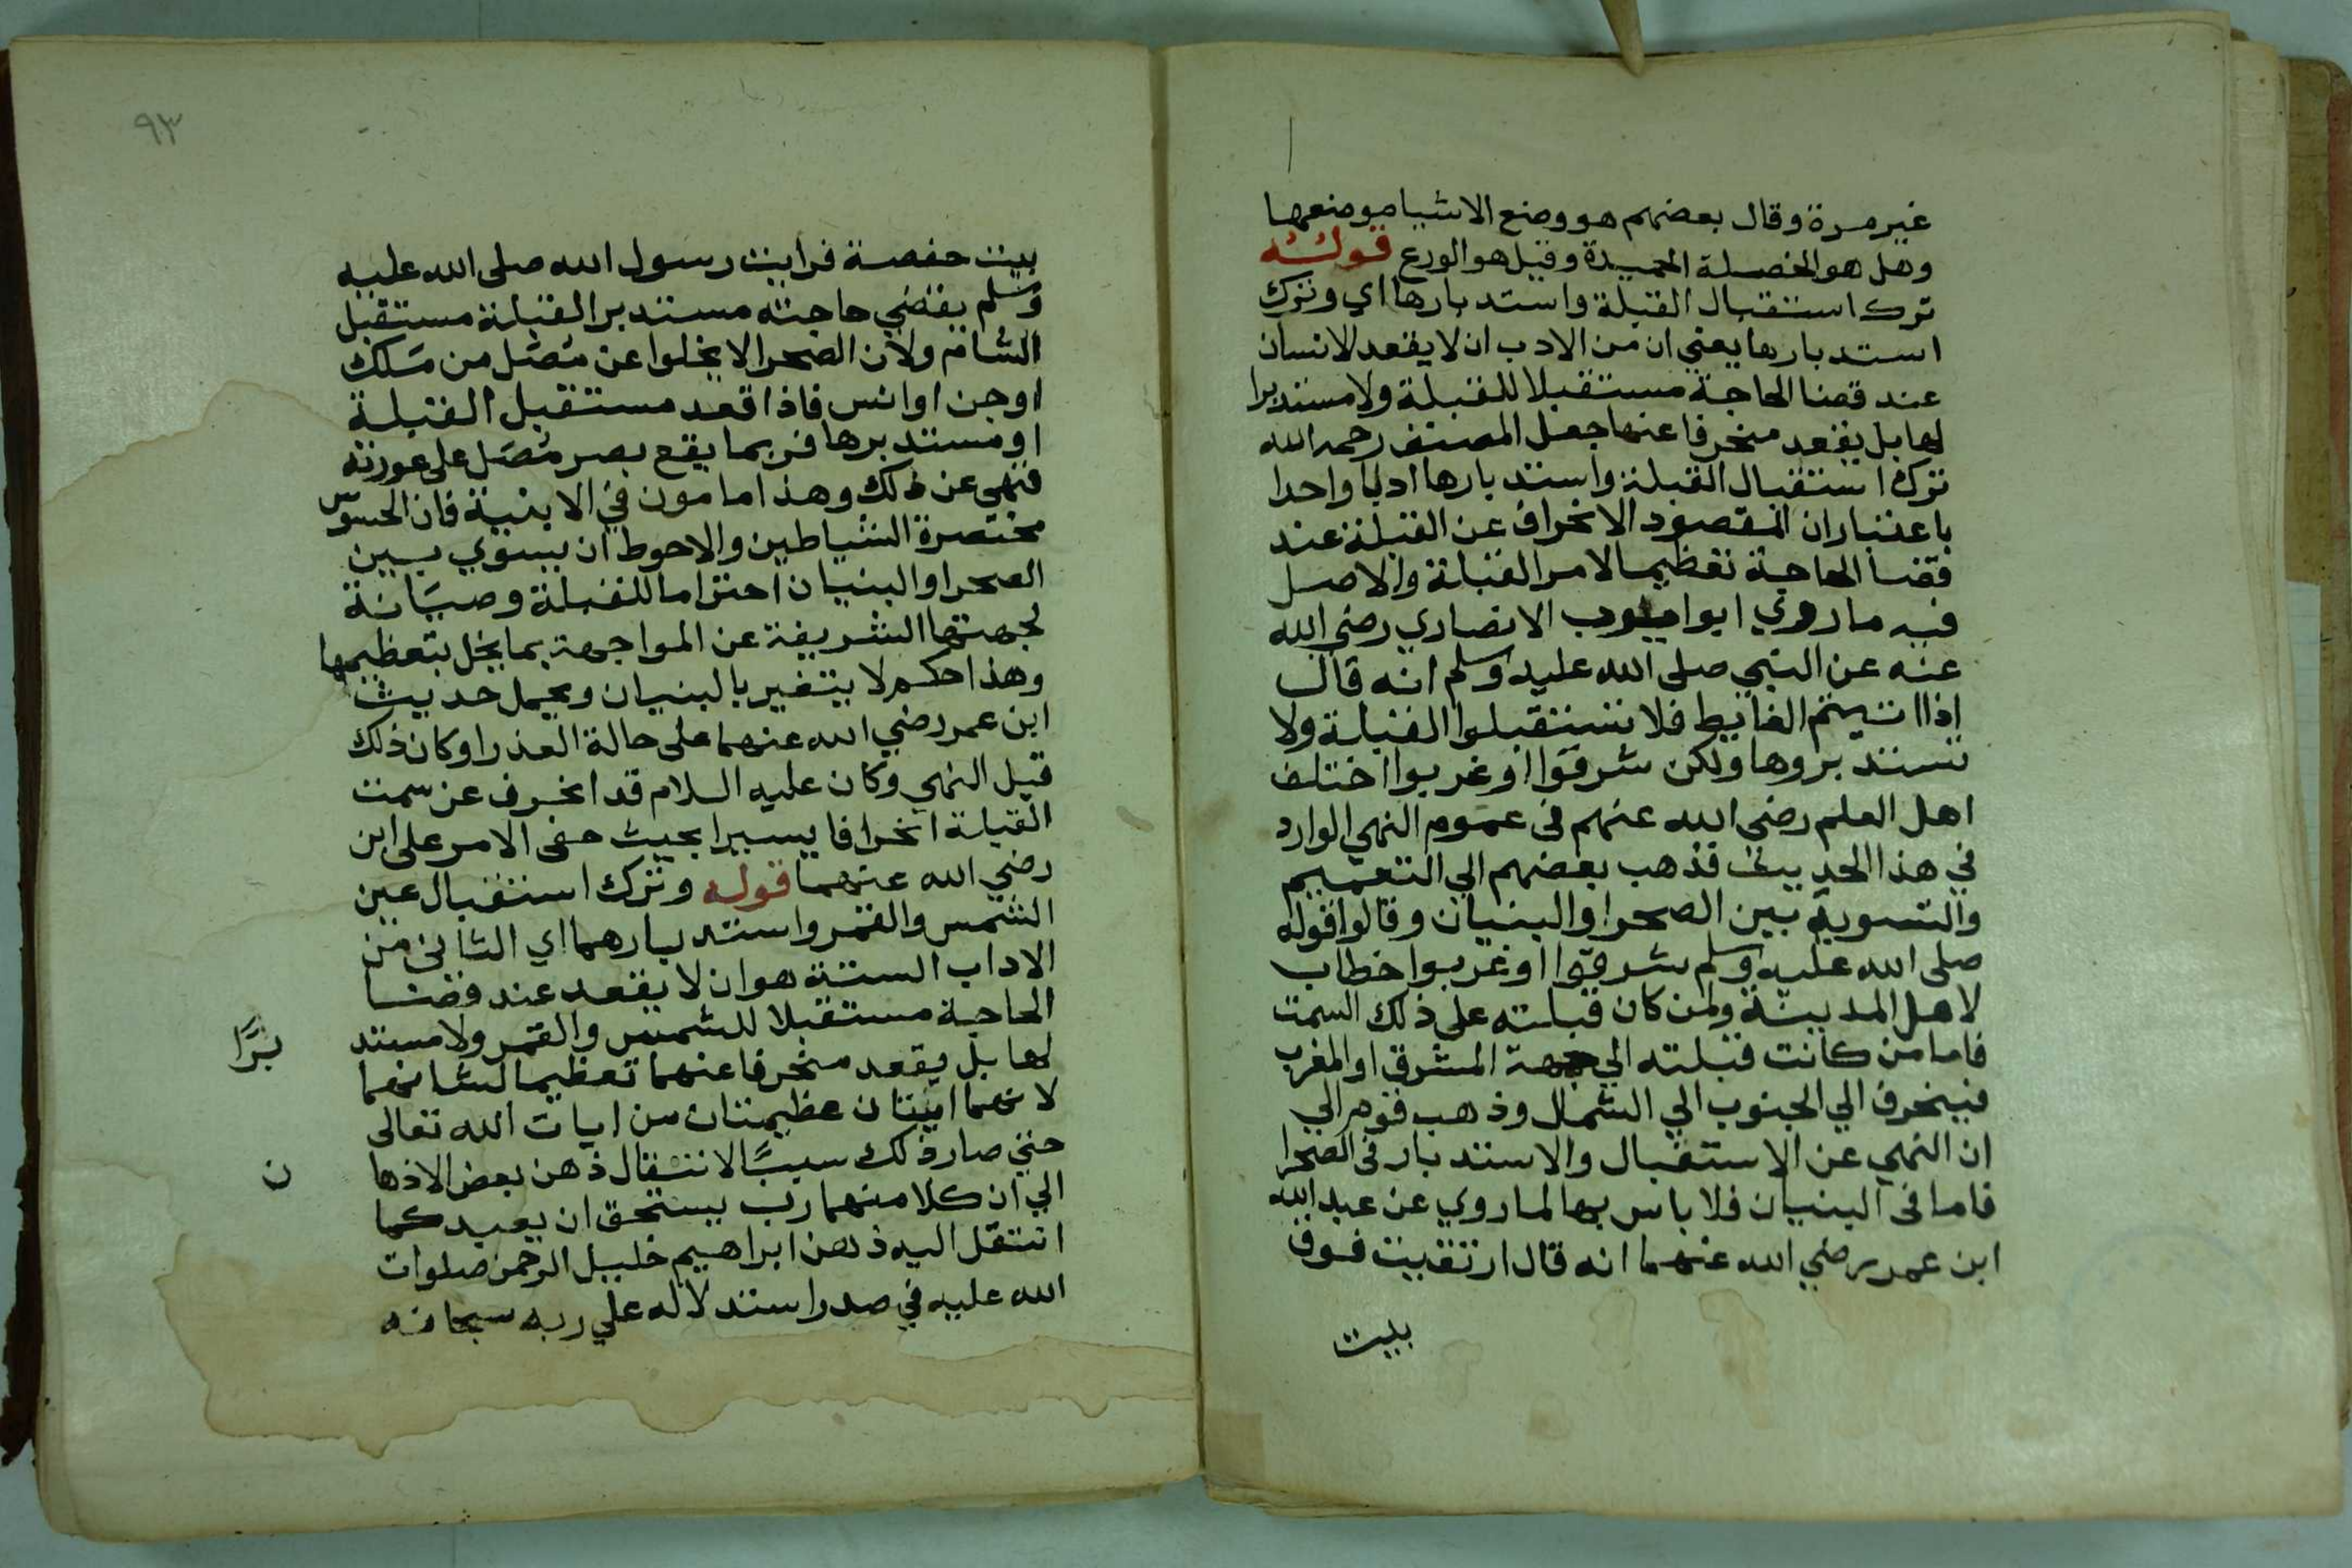 غير مرة وقال بعضهم هو وضع الاشيا موضعها
وهل هو الخصلة الحميدة وقيل هو الورع قوله
ترك استقبال القبلة واستدبارها اي وترك
استدبارها يعني ان من الادب ان لا يقعد الانسان
عند قضا الحاجة مستقبلا للقبلة ولا مستدبرا
لها بل يقعد منحرفا عنها جعل المصنف رحمه الله
ترك استقبال القبلة واستدبارها ادبا واحدا
باعتبار ان المقصود الانحراف عن القبلة عند
قضا الحاجة تعظيما لامر القبلة والاصل
فيه ما روي ابوا ايوب الانصاري رضي الله
عنه عن النبي صلى الله عليه وسلم انه قال
اذا اتيتم الغايط فلا تستقبلوا القبلة ولا
تستدبروها ولكن شرقوا او غربوا اختلف
اهل العلم رضي الله عنهم في عموم النهي الوارد
في هذا الحديث فذهب بعضهم الي التعميم
والتسوية بين الصحرا والبنيان وقالوا قوله
صلى الله عليه وسلم شرقوا او غربوا خطاب
لاهل المدينة ولمن كان قبلته على ذلك السمت
فاما من كانت قبلته الي جهة المشرق او المغرب
فينحرف الي الجنوب الي الشمال وذهب قوم الي
ان النهي عن الاستقبال والاستدبار في الصحرا
فاما في البنيان فلا باس بها لما روي عن عبد الله
ابن عمر رضي الله عنهما انه قال ارتقيت فوق
بيت
٩٣
بيت حفصة فرايت رسول الله صلى الله عليه
وسلم يقضي حاجته مستدبر القبلة مستقبل
الشام ولان الصحرا لا يخلوا عن مُصَل من مَلك
او جن او انس فاذا قعد مستقبل القبلة
او مستدبرها فربما يقع بصر مُصَل على عورته
فنهي عن ذلك وهذا مامون في الابنية فان الحشوش
مختصرة الشياطين والاحوط ان يسوي بين
الصحرا والبنيان احتراما للقبلة وصيَانة
لجهتها الشريفة عن المواجهة بما يخل بتعظيمها
وهذا حكم لا يتغير بالبنيان ويحمل حديث
ابن عمر رضي الله عنهما على حالة العذر او كان ذلك
قبل النهي وكان عليه السلام قد انحرف عن سمت
القبلة انحرافا يسيرا بحيث خفى الامر على ابن
رضي الله عنهما قوله وترك استقبال عين
الشمس والقمر واستدبارهما اي الثاني من
الاداب الستة هو ان لا يقعد عند قضا
الحاجة مستقبلا للشمس والقمر ولا مستد
برًا
لها بل يقعد منحرفا عنهما تعظيما لشانهما
لانهما ايتان عظيمتان من ايات الله تعالى
حتي صار ذلك سببًا لانتقال ذهن بعض الاذها
ن
الي ان كلا منهما رب يستحق ان يعبد كما
انتقل اليه ذهن ابراهيم خليل الرحمن صلوات
الله عليه في صدر استدلاله علي ربه سبحانه